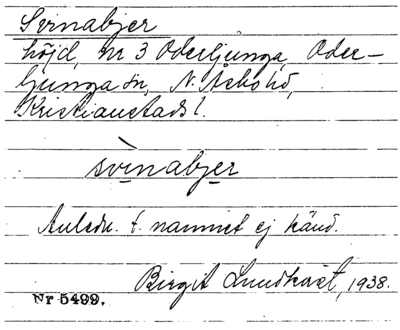 Svinabjer
höjd, nr 3 Oderljunga, Oder-
ljunga sn, N. Åsbo hd,
Kristianstads l.
svìnabjer
Anledn. t. namnet ej känd.
Birgit Lundkvist, 1938.
Nr 5499.